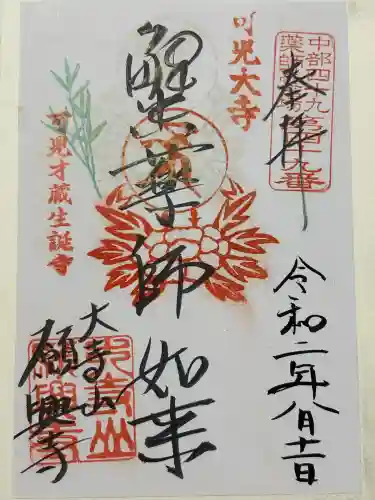 中部四十九
薬師第廿九番
奉拝
令和二年八月十二日
可児大寺
蟹薬師如来
可児才蔵生誕寺
大寺山
願興寺